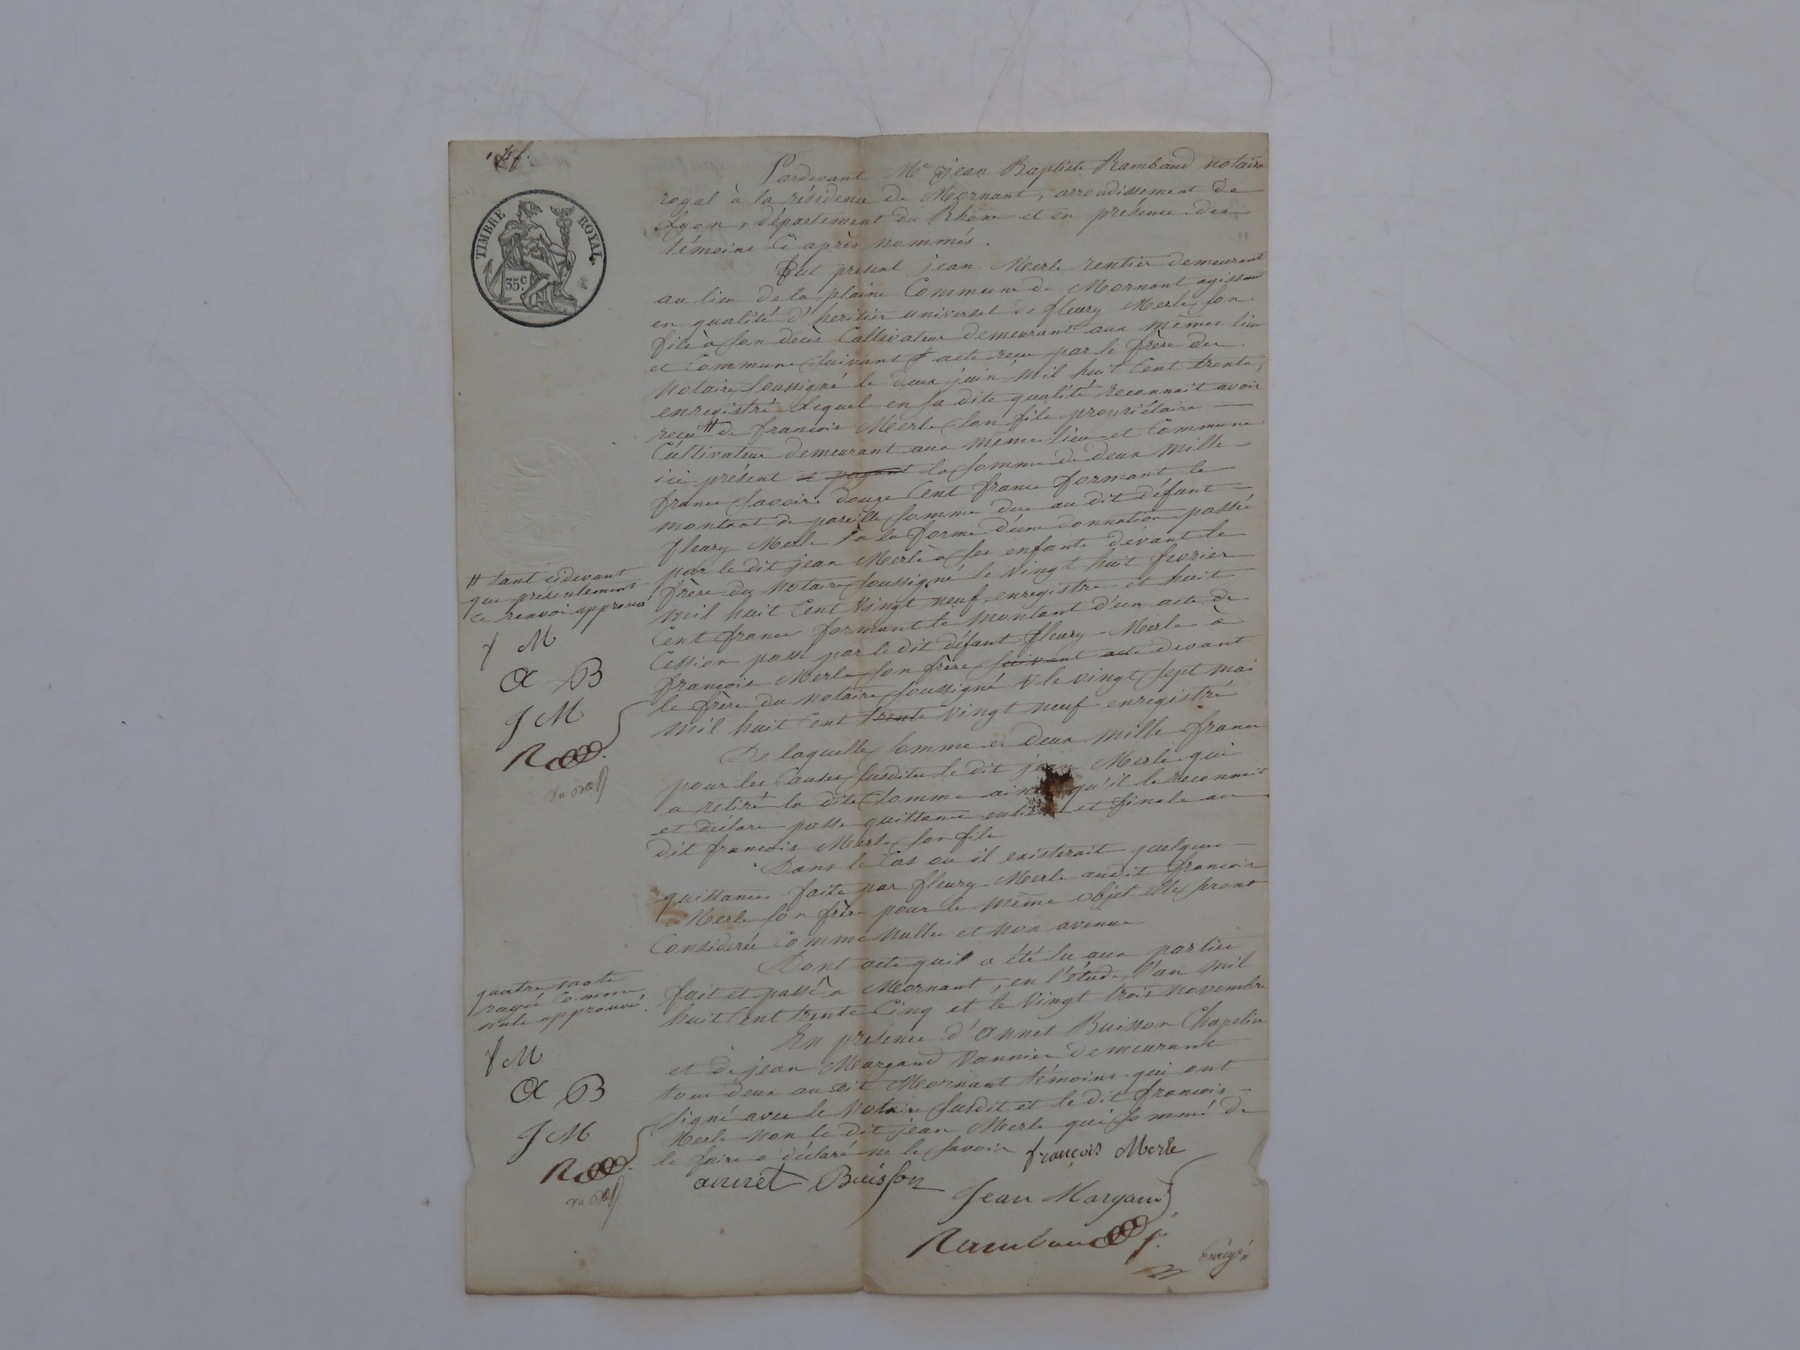 TIMBRE ROYAL
35c.
Pardevant Me jean Baptiste Rambaud notaire
royal à la résidence de Mornant, arrondissement de
Lyon, département du Rhône et en présence des
témoins ci après nommés.
Fut présent jean Merle rentier demeurant
au lieu de la plaine Commune de Mornant agissant
en qualité d'heritier universel de fleury Merle son
fils à son decès Cultivateur demeurant aux mêmes lieu
et Commune suivant acte reçu par le frère du
Notaire soussigné le deux juin mil huit Cent trente,
enregistré. Lequel en sa dite qualité reconnait avoir
reçu # de françois Merle son fils propriétaire
Cultivateur demeurant aux même lieu et Commune
ici présent et payant la somme de deux mille
francs savoir: douze Cent francs formant le
montant de pareille somme due au dit défunt
fleury Merle à la forme d'une donnation passée
par le dit jean Merle à ses enfants devant le
frère du Notaire soussigné le vingt huit fevrier
mil huit Cent vingt neuf enregistré et huit
Cent francs formant le montant d'un acte de
Cession passé par le dit défunt fleury Merle à
françois Merle son frère suivant acte devant
le frère du Notaire soussigné le vingt sept mai
mil huit Cent trente vingt neuf enregistré
De laquelle somme de deux mille francs
pour les Causes susdites le dit jean Merle qui
a retiré la dite somme ainsi qu'il le reconnait
et déclare passe quittance entière et finale au
dit françois Merle son fils
Dans le Cas ou il existerait quelques
quittances faite par fleury Merle audit françois
Merle son frère pour le même objet elles seront
Considerée Comme Nulles et non avenue
Dont acte quil a été lu aux parties
fait et passé à Mornant, en l'étude l'an mil
huit Cent trente Cinq et le vingt trois Novembre
En présence d'annet Buisson Chapelier
et de jean Margand Vannier demeurant
tous deux au dit Mornant témoins qui ont
signé avec le Notaire susdit et le dit françois
Merle Non le dit jean Merle qui sommé de
le faire a déclaré ne le savoir
françois Merle
annet Buisson
Jean Margand
Rambaud
Enregré
# tant cidevant
que présentement
ce renvoi approuvé
f M
A B
J M
R
quatre mots
rayés Comme
nuls approuvé.
f M
A B
J M
R